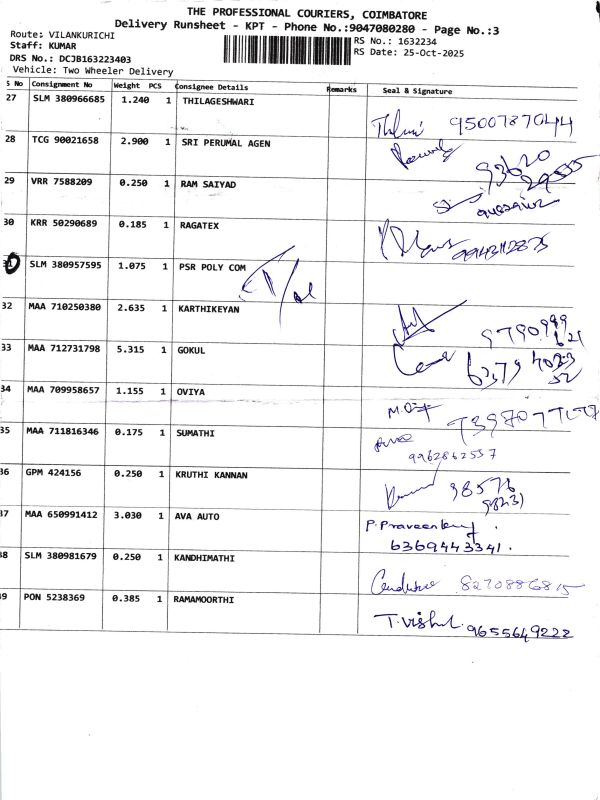 THE PROFESSIONAL COURIERS, COIMBATORE
Delivery Runsheet - KPT - Phone No.:9047080280 - Page No.:3
Route: VILANKURICHI
Staff: KUMAR
RS No.: 1632234
DRS No.: DCJB163223403
RS Date: 25-Oct-2025
Vehicle: Two Wheeler Delivery
S No Consignment No Weight PCS Consignee Details Remarks Seal & Signature
27 SLM 380966685 1.240 1 THILAGESHWARI
9500787044
28 TCG 90021658 2.900 1 SRI PERUMAL AGEN
93620
29 VRR 7588209 0.250 1 RAM SAIYAD
30 KRR 50290689 0.185 1 RAGATEX
31 SLM 380957595 1.075 1 PSR POLY COM
32 MAA 710250380 2.635 1 KARTHIKEYAN
9790
33 MAA 712731798 5.315 1 GOKUL
6379
34 MAA 709958657 1.155 1 OVIYA
35 MAA 711816346 0.175 1 SUMATHI
9962862557
36 GPM 424156 0.250 1 KRUTHI KANNAN
98576
98231
37 MAA 650991412 3.030 1 AVA AUTO
6369443341.
38 SLM 380981679 0.250 1 KANDHIMATHI
8270886815
39 PON 5238369 0.385 1 RAMAMOORTHI
T. Vishul. 9655649222